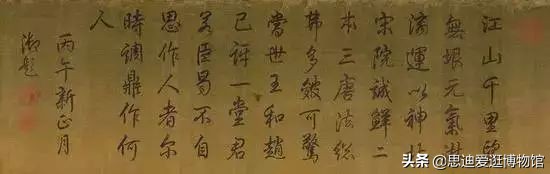 江山千里望
無垠元氣淋
漓運以神北
宋院誠鮮二
本三唐法総
弗多皴可驚
當世王和趙
已訝一堂君
若臣曷不自
思作人者尔
時調鼎作何
人
丙午新正月
御題
头条 @思迪爱逛博物馆